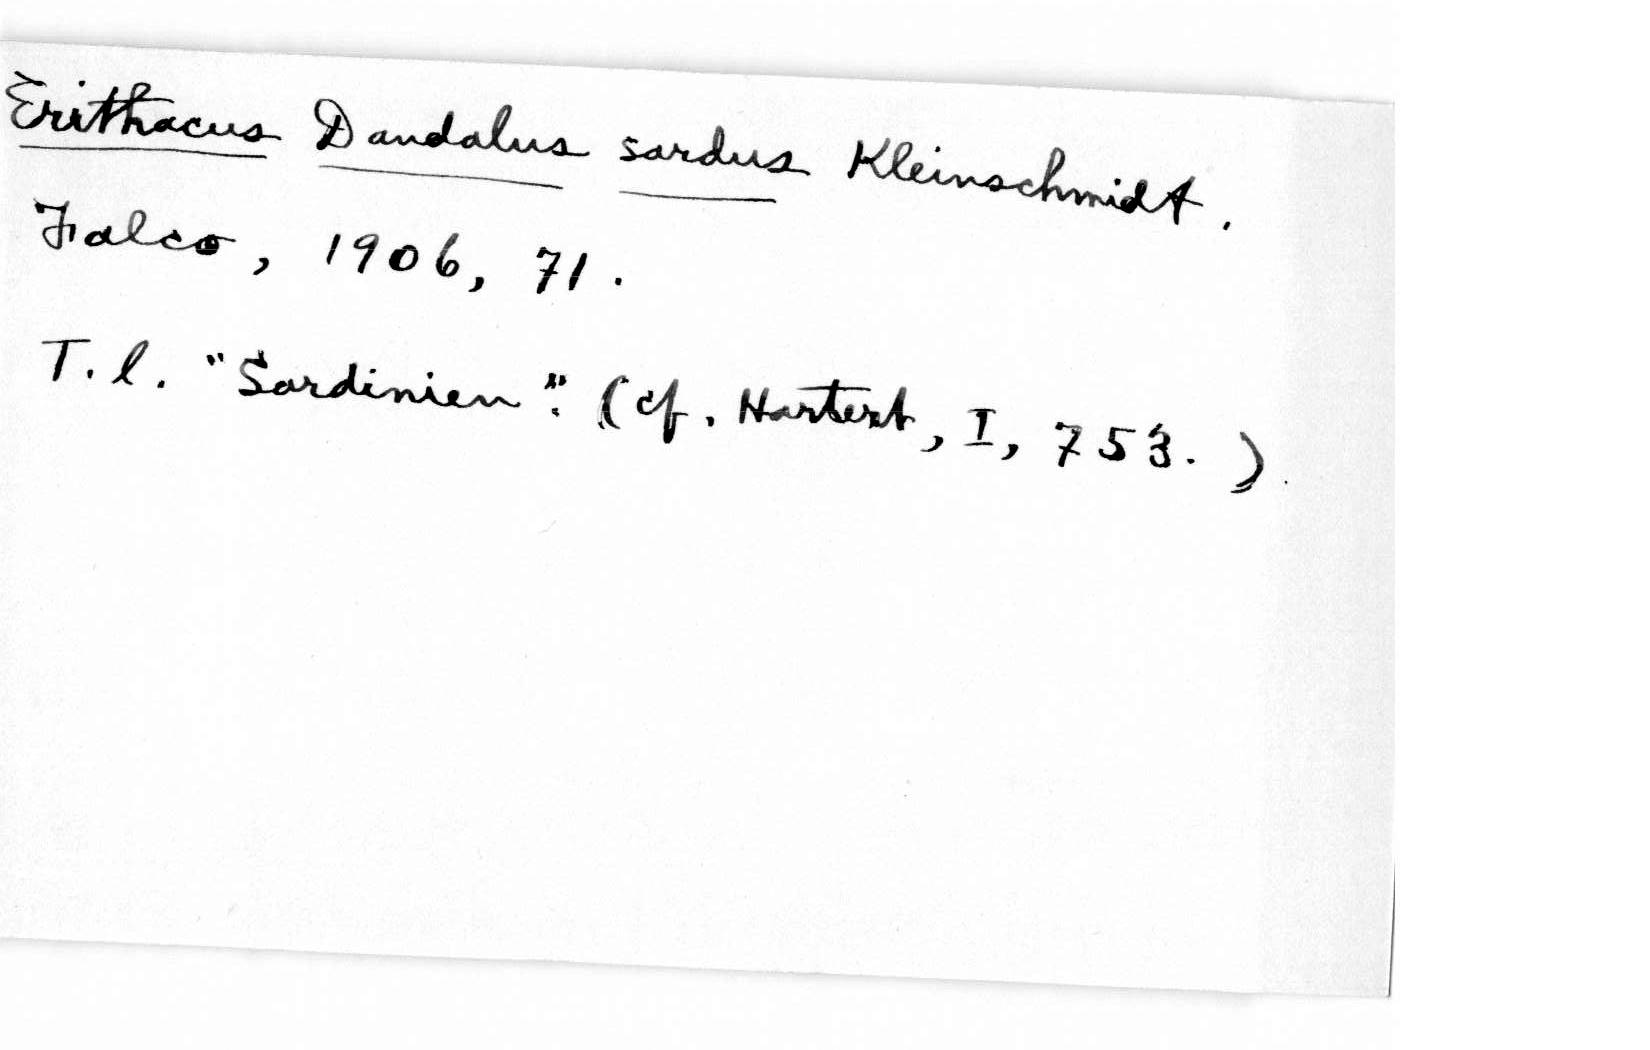 Erithacus Dandalus sardus Kleinschmidt.
Falco, 1906, 71.
T. l. "Sardinien". (cf. Hartert, I, 753.)